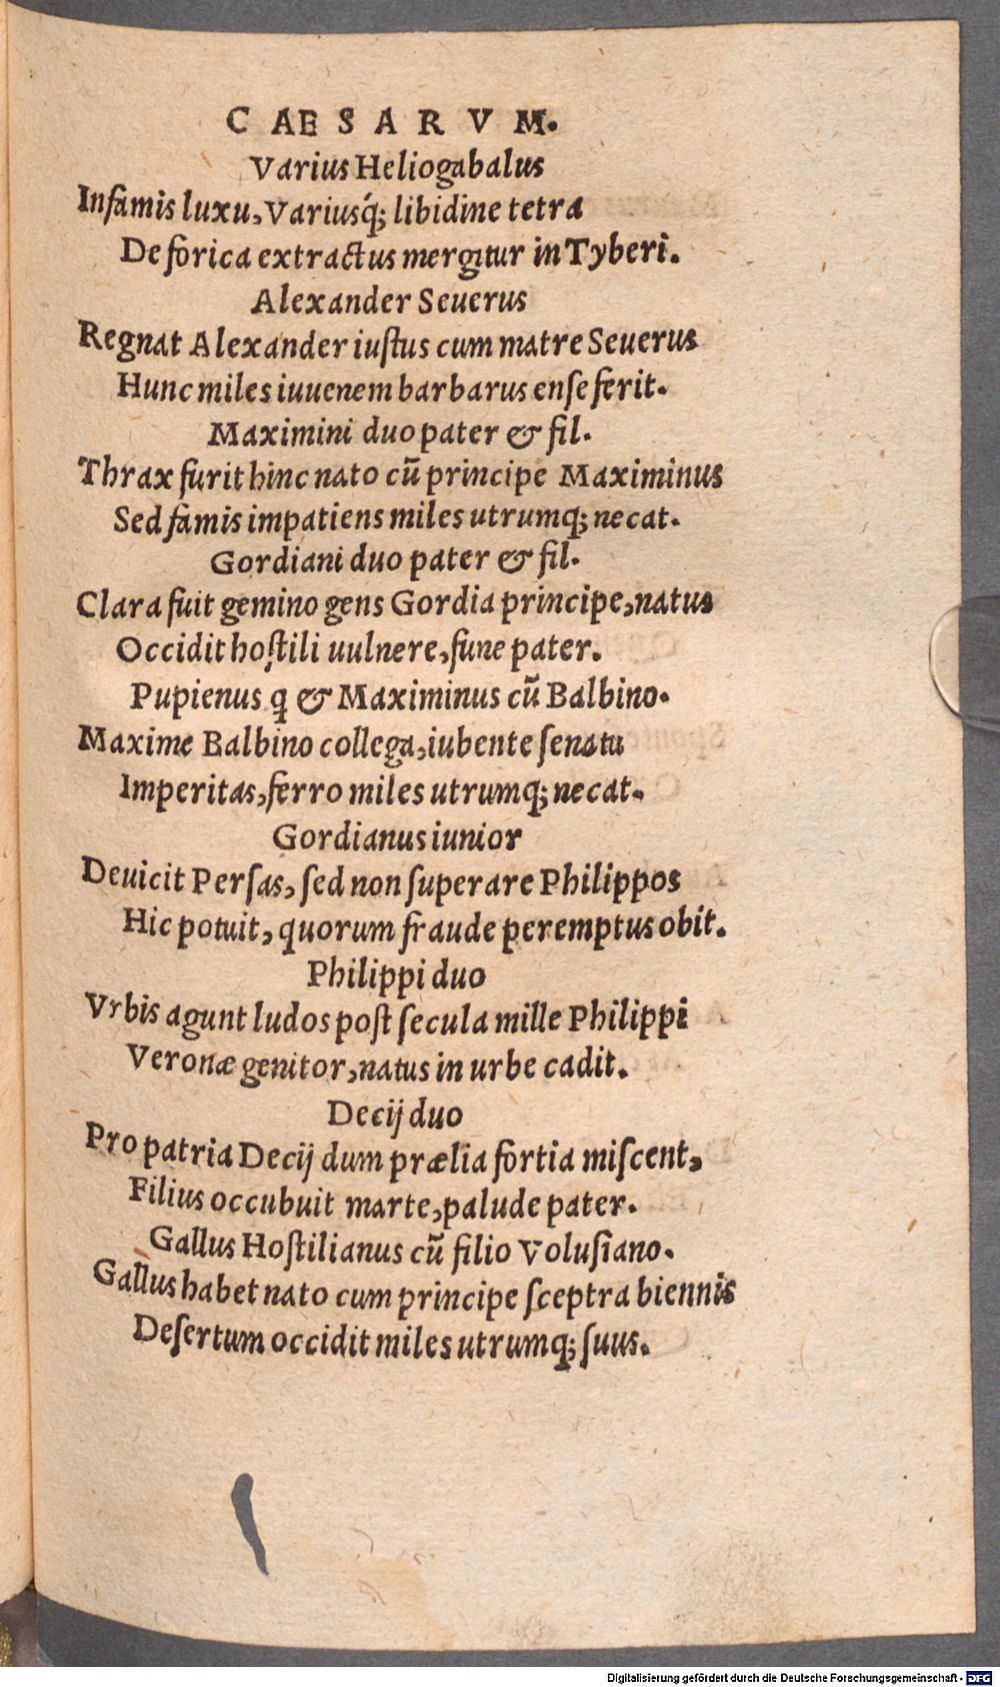 C AE S A R V M.
Varius Heliogabalus
Infamis luxu, Variusq́; libidine tetra
De forica extractus mergitur in Tyberi.
Alexander Seuerus
Regnat Alexander iustus cum matre Seuerus
Hunc miles iuuenem barbarus ense ferit.
Maximini duo pater & fil.
Thrax furit hinc nato cū principe Maximinus
Sed famis impatiens miles utrumq; necat.
Gordiani duo pater & fil.
Clara fuit gemino gens Gordia principe, natus
Occidit hostili uulnere, fune pater.
Pupienus q & Maximinus cū Balbino.
Maxime Balbino collega, iubente senatu
Imperitas, ferro miles utrumq; necat.
Gordianus iunior
Deuicit Persas, sed non superare Philippos
Hic potuit, quorum fraude peremptus obit.
Philippi duo
Vrbis agunt ludos post secula mille Philippi
Veronæ genitor, natus in urbe cadit.
Decij duo
Pro patria Decij dum prælia fortia miscent,
Filius occubuit marte, palude pater.
Gallus Hostilianus cū filio Volusiano.
Gallus habet nato cum principe sceptra biennis
Desertum occidit miles utrumq; suus.
Digitalisierung gefördert durch die Deutsche Forschungsgemeinschaft - DFG